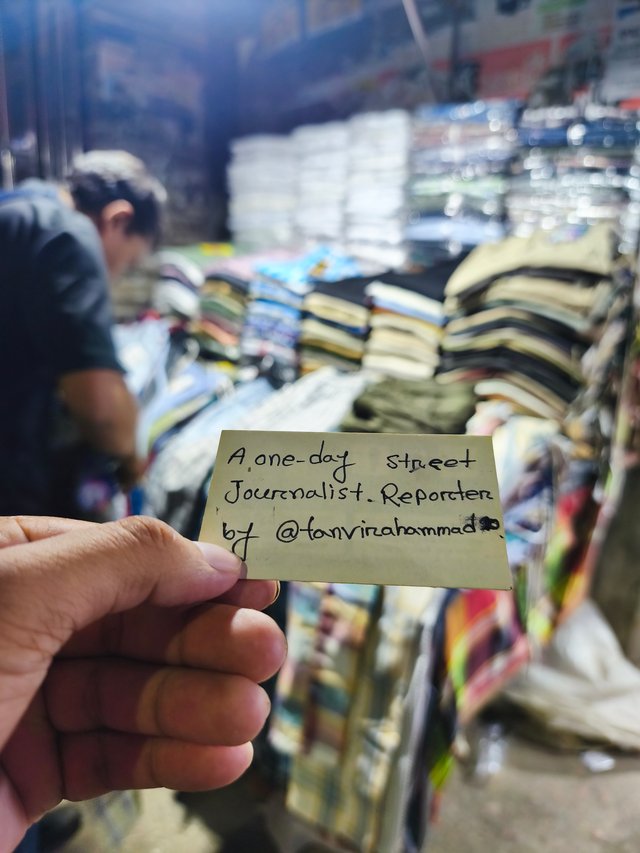 A one-day street
Journalist. Reporter
by @tanvirahammad